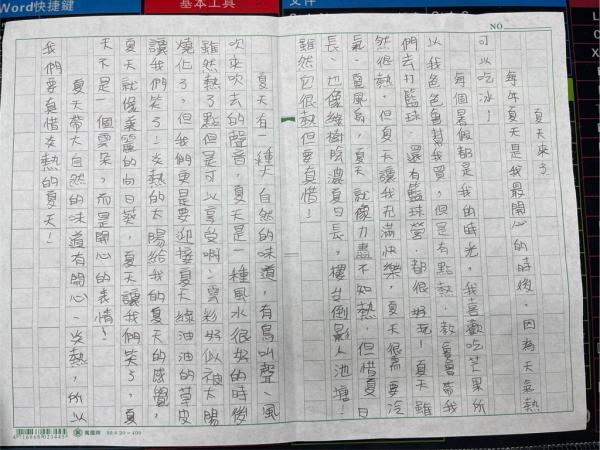 Word快捷鍵
基本工具
文件
NO
夏天來了
每年夏天是我最開心的時後,因為天氣熱
可以吃冰!
每個暑假都是我的時光,我喜歡吃芒果所
以我爸爸會幫我買,但是有點熱,教會會帶我
們去打籃球,還有籃球營,都很好玩!夏天雖
然很熱,但夏天讓我充滿快樂,夏天很需要冷
氣、夏風扇,夏天就像力盡不知熱,但惜夏日
長、也像綠樹陰濃夏日長,樓台倒影入池塘!
雖然它很熱但要真惜!
夏天有一種大自然的味道,有鳥叫聲、風
吹來吹去的聲音,夏天是一種風水很好的時後
雖然熱了點但是可以享受啊!雲彩好似被太陽
燒化了,但我們更是要迎接夏天綠油油的草皮
讓我們笑了!炎熱的太陽給我的夏天的感覺,
夏天就像美麗的向日葵,夏天讓我們笑了,夏
天不是一個雲朵,而是開心的表情!
夏天帶大自然的味道有開心、炎熱,所以
我們要真惜炎熱的夏天!
4 716868 023445
萬國牌 20×20=400